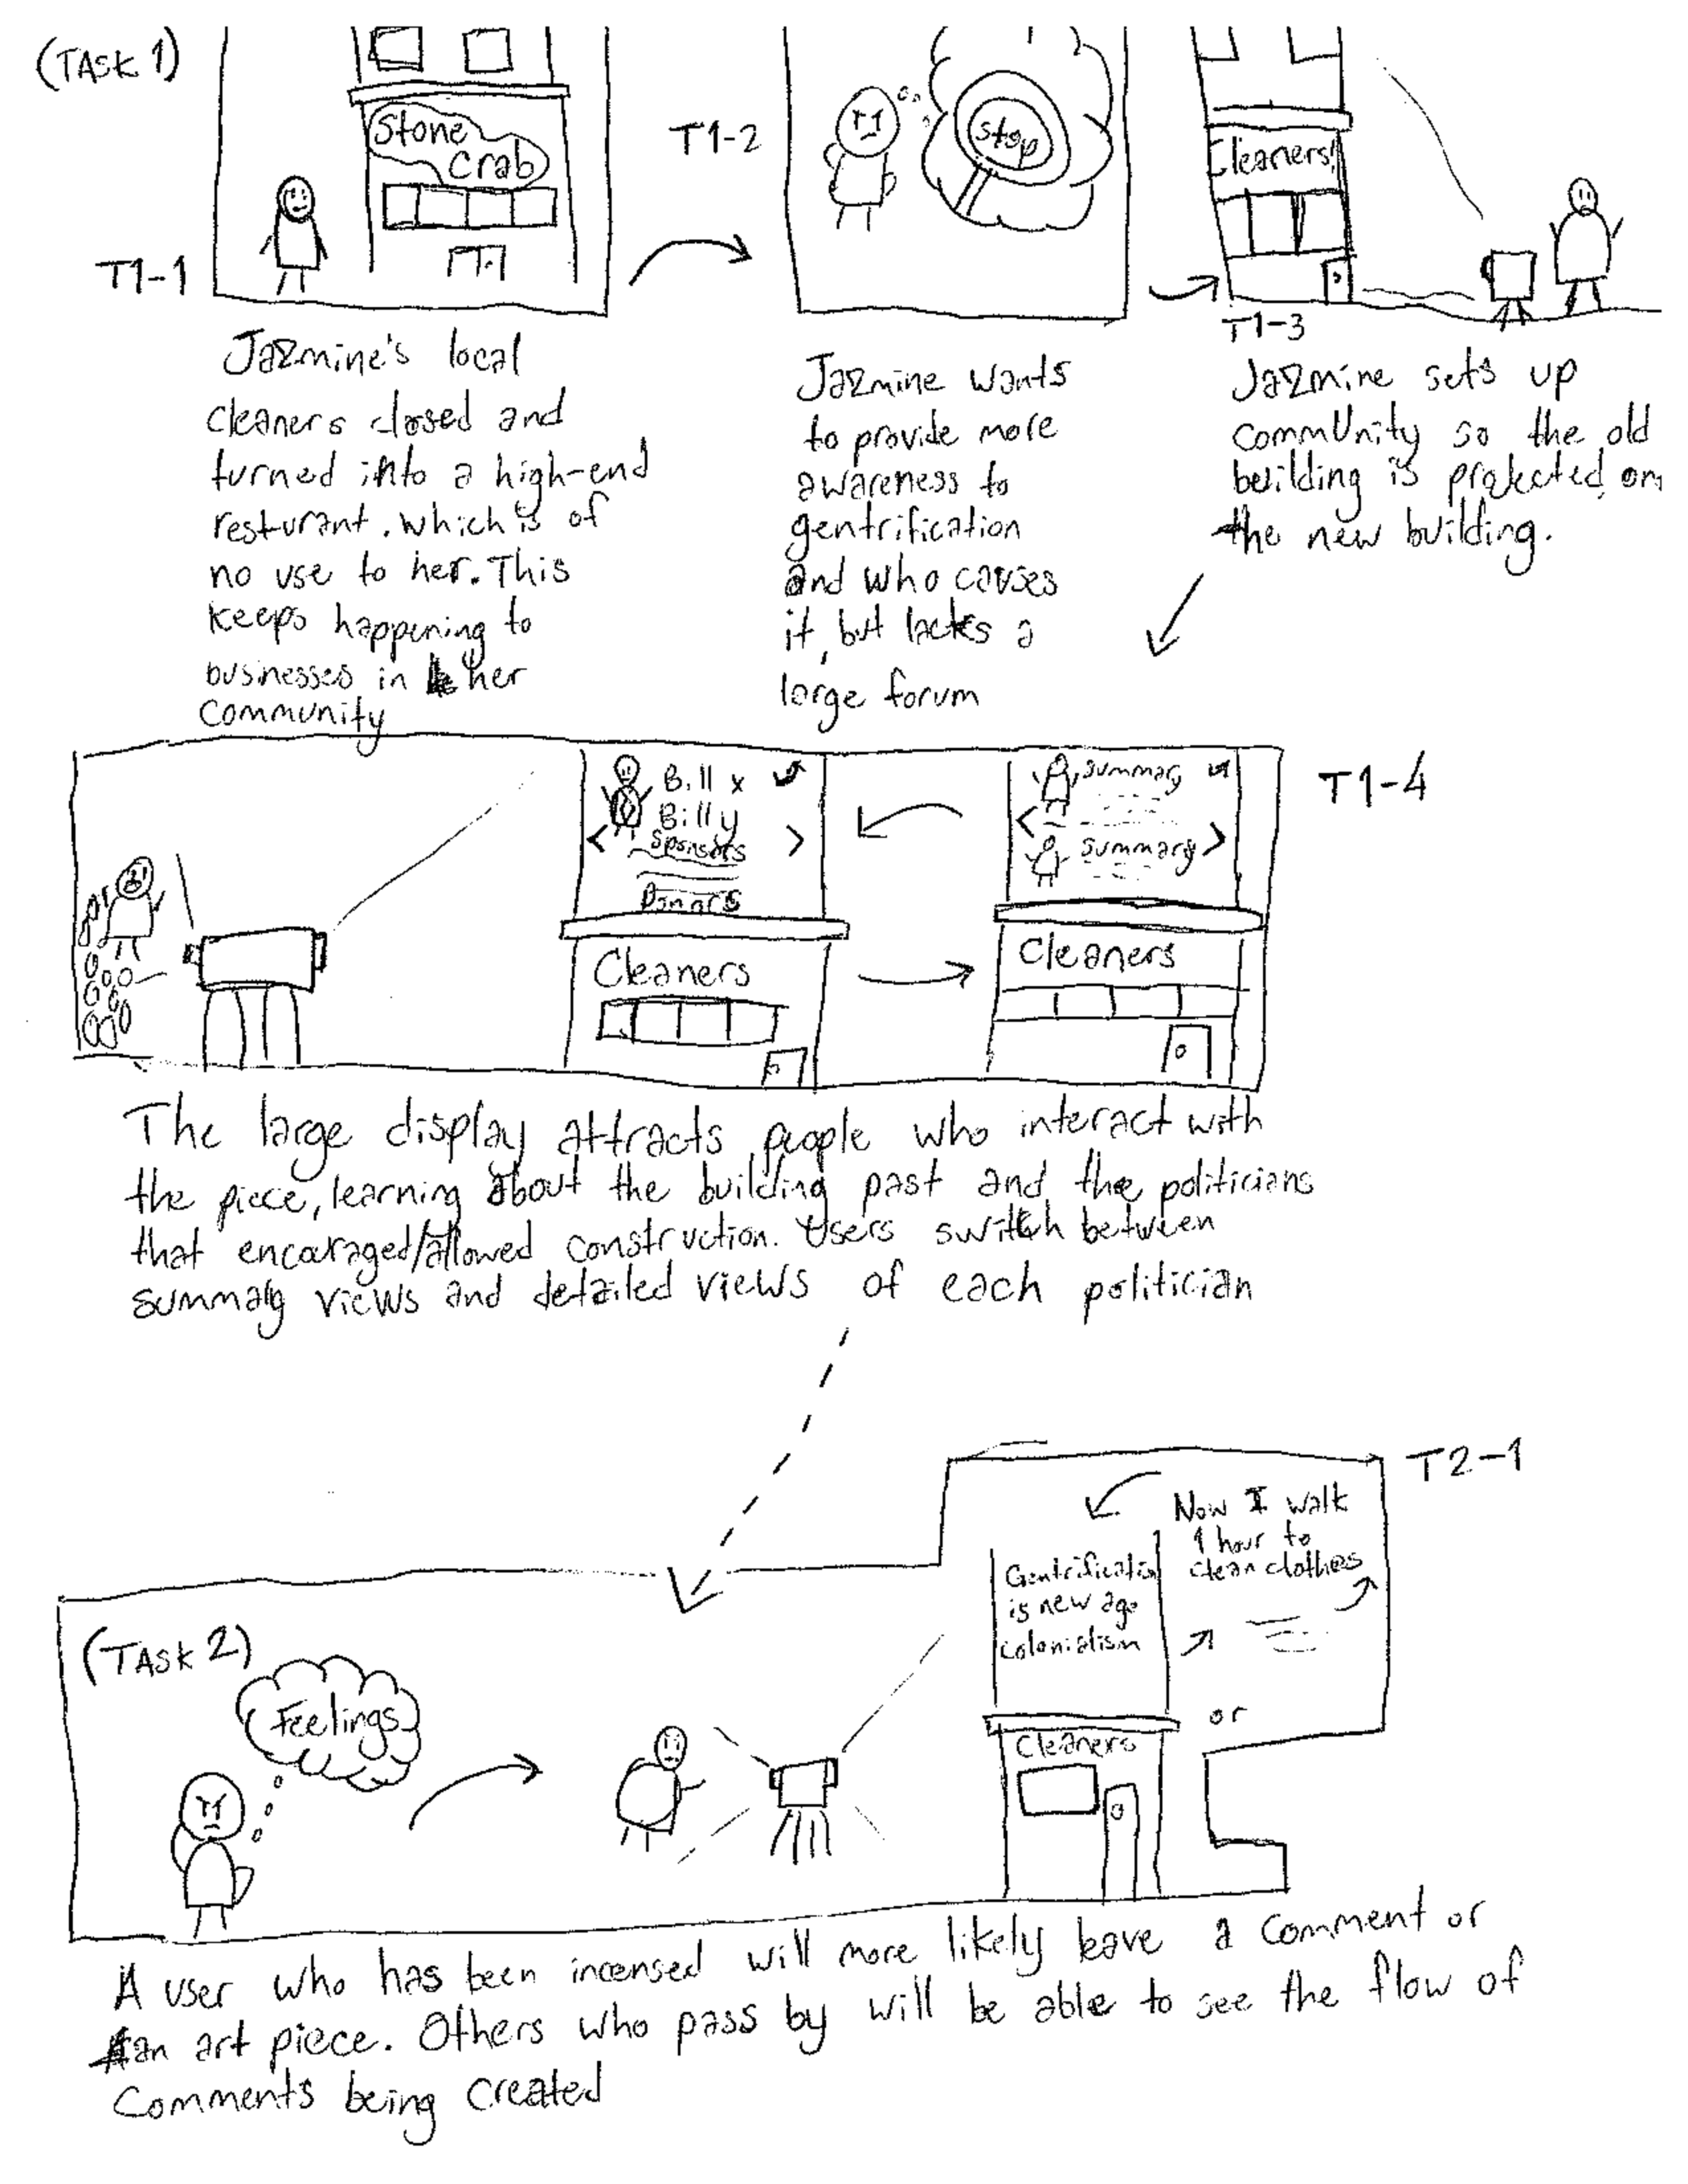 (TASK 1)
T1-1
Stone
Crab
Jazmine's local
cleaners closed and
turned into a high-end
resturant. which is of
no use to her. This
keeps happening to
businesses in her
Community
T1-2
stop
Jazmine wants
to provide more
awareness to
gentrification
and who causes
it, but lacks a
large forum
Cleaners!
T1-3
Jazmine sets up
commUnity so the old
building is projected on
the new building.
T1-4
Bill x
Bill y
Sponsors
Donors
Cleaners
Summary
Summary
Cleaners
The large display attracts people who interact with
the piece, learning about the building past and the politicians
that encouraged/allowed construction. Users switch between
summary views and detailed views of each politician
T2-1
(TASK 2)
Feelings
Gentrification
is new age
colonialism
Now I walk
1 hour to
clean clothes
or
Cleaners
A user who has been incensed will more likely leave a comment or
an art piece. Others who pass by will be able to see the flow of
Comments being created